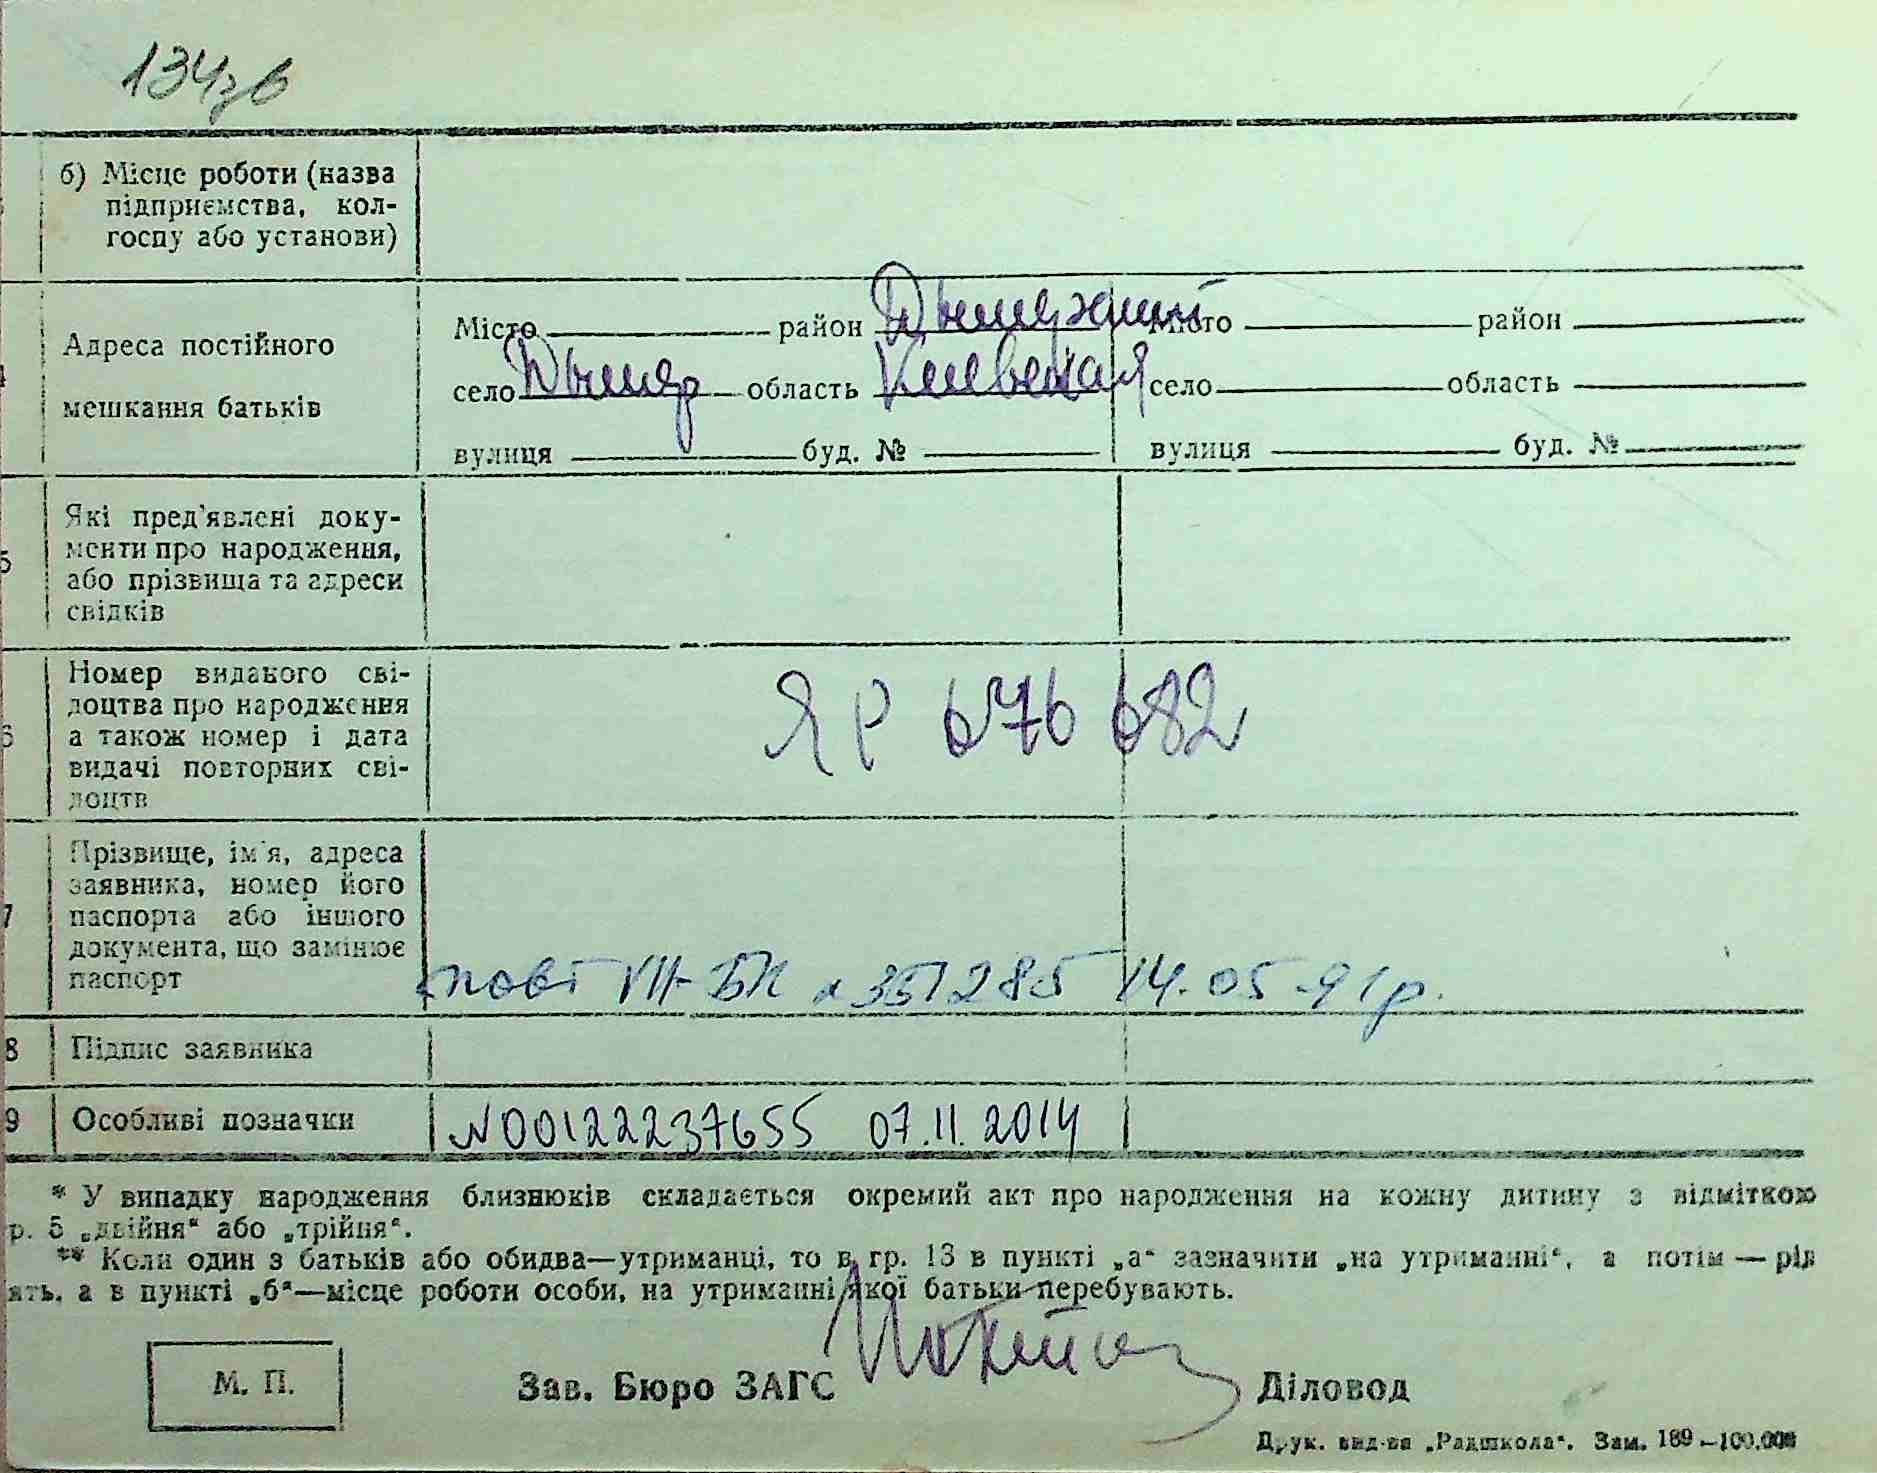 134зв
б) Місце роботи (назва
підприємства, кол-
госпу або установи)
Адреса постійного
мешкання батьків
Місто район Дымерский
село Дымер область Киевская
вулиця буд. №
Місто район
село область
вулиця буд. №
5 Які пред'явлені доку-
менти про народження,
або прізвища та адреси
свідків
6 Номер виданого сві-
доцтва про народження
а також номер і дата
видачі повторних сві-
доцтв
ЯР 676 682
7 Прізвище, ім'я, адреса
заявника, номер його
паспорта або іншого
документа, що замінює
паспорт
повт VII-БК № 351285 14.05.91р.
8 Підпис заявника
9 Особливі позначки
N00122237655 07.11.2014
* У випадку народження близнюків складається окремий акт про народження на кожну дитину з відміткою
р. 5 „двійня“ або „трійня“.
** Коли один з батьків або обидва—утриманці, то в гр. 13 в пункті „а“ зазначити „на утриманні“, а потім — рід
ять, а в пункті „б“—місце роботи особи, на утриманні якої батьки перебувають.
М. П.
Зав. Бюро ЗАГС
Діловод
Друк. вид-ва „Радшкола“. Зам. 189—100.000